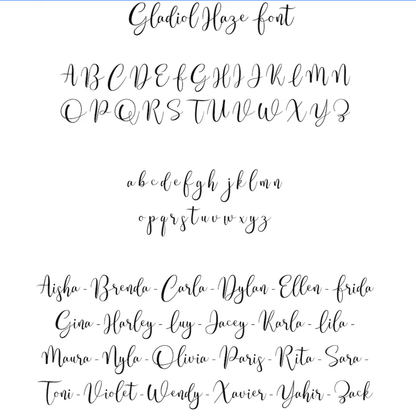 Gladiol Haze font
A B C D E F G H I J K L M N
O P Q R S T U V W X Y Z
a b c d e f g h j k l m n
o p q r s t u v w x y z
Aisha - Brenda - Carla - Dylan - Ellen - Frida
Gina - Harley - Luy - Jacey - Karla - Lila -
Maura - Nyla - Olivia - Paris - Rita - Sara -
Toni - Violet - Wendy - Xavier - Yahir - Zack